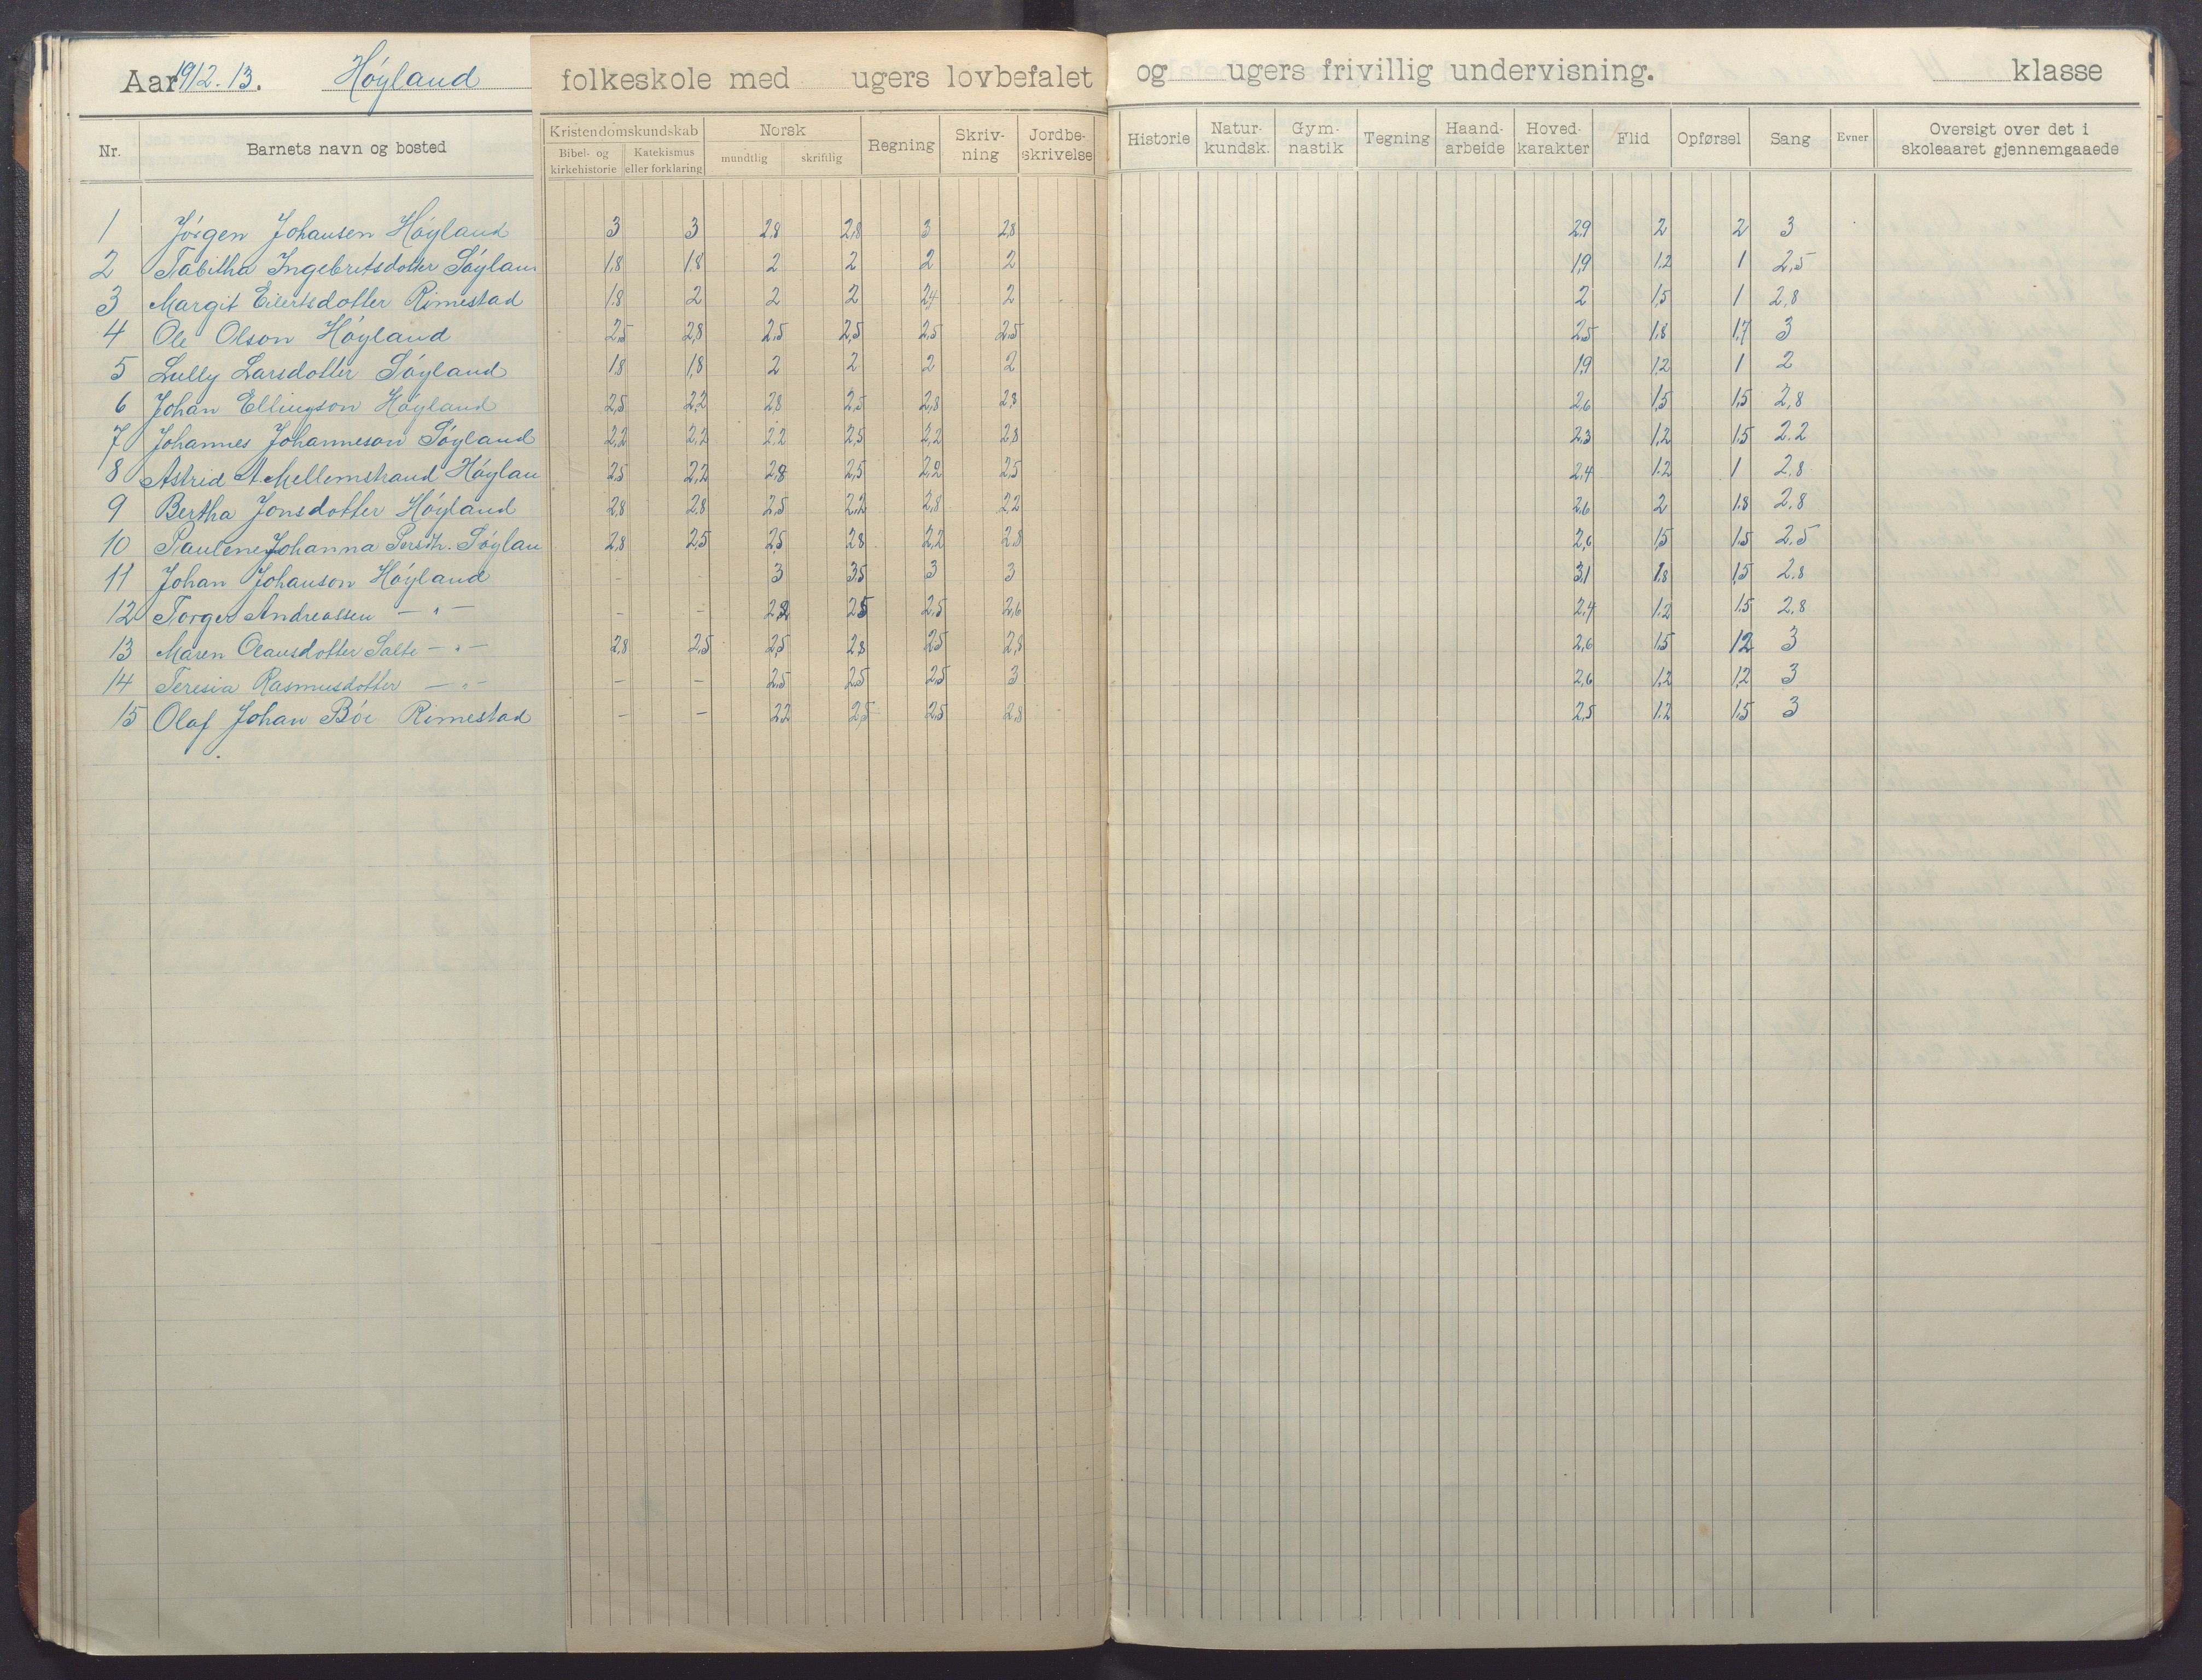 Aar 1912.13. Höyland folkeskole med ugers lovbefalet og ugers frivillig undervisning. klasse
Nr. Barnets navn og bosted Kristendomskundskab Bibel- og kirkehistorie Katekismus eller forklaring Norsk mundtlig skriftlig Regning Skriv-ning Jordbe-skrivelse Historie Natur-kundsk. Gym-nastik Tegning Haand-arbeide Hoved-karakter Flid Opførsel Sang Evner Oversigt over det i skoleaaret gjennemgaaede
1 Jörgen Johansen Höyland 3 3 2,8 2,8 3 2,8 2,9 2 2 3
2 Tabitha Ingebretsdotter Söylan 1,8 1,8 2 2 2 2 1,9 1,2 1 2,5
3 Margit Eilertsdotter Rimestad 1,8 2 2 2 2,4 2 2 1,5 1 2,8
4 Ole Olson Höyland 2,5 2,8 2,5 2,5 2,5 2,5 2,5 1,8 1,7 3
5 Lully Larsdotter Söyland 1,8 1,8 2 2 2 2 1,9 1,2 1 2
6 Johan Ellingson Höyland 2,5 2,2 2,8 2,5 2,8 2,8 2,6 1,5 1,5 2,8
7 Johannes Johanneson Söyland 2,2 2,2 2,2 2,5 2,2 2,8 2,3 1,2 1,5 2.2
8 Astrid A. Mellemstrand Höylan 2,5 2,2 2,8 2,5 2,2 2,5 2,4 1,2 1 2,8
9 Bertha Jonsdotter Höyland 2,8 2,8 2,5 2,2 2,8 2,2 2,6 2 1,8 2,8
10 Pauline Johanna Persdtr. Söylan 2,8 2,5 2,5 2,8 2,2 2,8 2,6 1,5 1,5 2,5
11 Johan Johanson Höyland - - 3 3,5 3 3 3,1 1,8 1,5 2,8
12 Torger Andreassen — " — - - 2,2 2,5 2,5 2,6 2,4 1,2 1,5 2,8
13 Maren Olausdotter Salte — " — 2,8 2,5 2,5 2,8 2,5 2,8 2,6 1,5 1,2 3
14 Teresia Rasmusdotter — " — - - 2,5 2,5 2,5 3 2,6 1,2 1,2 3
15 Olaf Johan Böe Rimestad - - 2,2 2,5 2,5 2,8 2,5 1,2 1,5 3